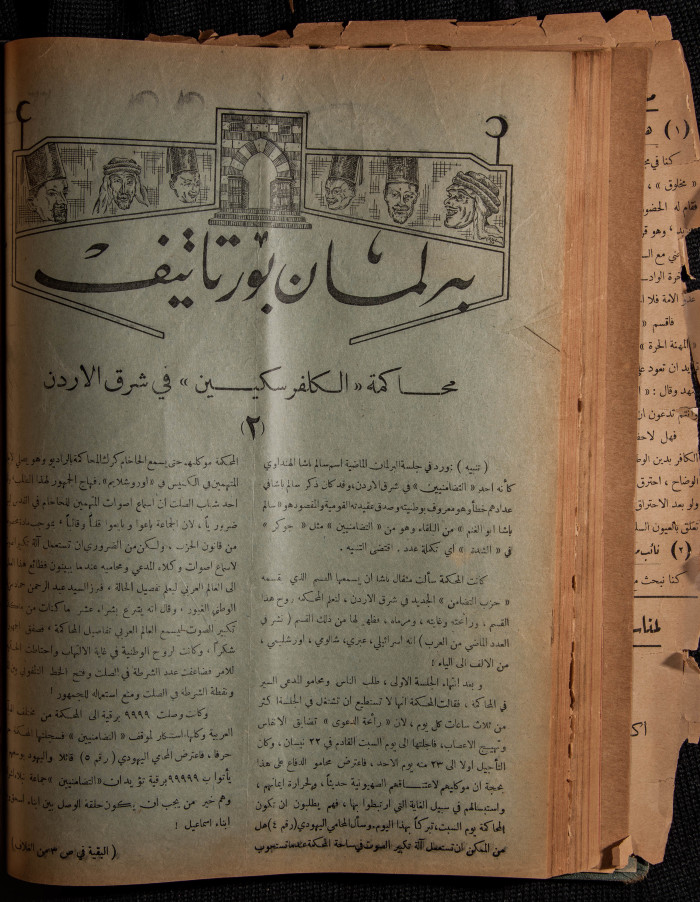 برلمان بورتاتيف
محاكمة «الكلفرسكيين» في شرق الاردن
(٢)
( تنبيه ) : ورد في جلسة البرلمان الماضية اسم سالم باشا الهنداوي
كأنه احد «التضامنيين» في شرق الاردن، وقد كان ذكر سالم باشا في
عدادهم خطأ وهو معروف بوطنيته وصدق عقيدته القومية والمقصود هو «سالم
باشا ابو الغنم» من البلقاء وهو من «التضامنيين» مثل «جوكر»
في «الشدة» أي تكملة عدد . اقتضى التنبيه .
كانت المحكمة سألت مثقال باشا ان يسمعها القسم الذي يقسمه
« حزب التضامن » الجديد في شرق الاردن ، لتعلم المحكمة روح هذا
القسم ، ورائحته وغايته ، ومرماه ، فظهر لها من ذلك القسم ( نشر في
العدد الماضي من العرب ) انه اسرائيلي، عبري، شالومي ، اورشليمي ،
من الالف الى الياء !
و بعد انتهاء الجلسة الاولى ، طلب الناس ومحامو المدعي السير
في المحاكمة ، فقالت المحكمة انها لا تستطيع ان تشتغل في الجلسة اكثر
من ثلاث ساعات كل يوم ، لان « رائحة الدعوى » تضايق الانفاس
وتهيج الاعصاب، فاجلتها الى يوم السبت القادم في ٢٢ نيسان ، وكان
التأجيل اولا الى ٢٣ منه يوم الاحد ، فاعترض محامو الدفاع على هذا
بحجة ان موكليهم لاعتناقهم الصهيونية حديثاً ، ولحرارة ايمانهم ،
واستبسالهم في سبيل الغاية التي ارتبطوا بها ، فهم يطلبون ان تكون
المحاكمة يوم السبت، تبركاً بهذا اليوم . وسأل المحامي اليهودي (رقم ٤) هل
من الممكن ان تستعمل آلة تكبير الصوت في ساحة المحكمة عندما تستجوب
المحكمة موكليه، حتى يسمع الحاخام كرك المحاكمة بالراديو وهو يصلي
المتهمين في الكنيس في «اورشلايم» . فهاج الجمهور لهذا
احد شباب الصلت ان اسماع اصوات المتهمين للحاخام في القدس
ضرورياً ، لان الجماعة باعوا وبايعوا قلباً وقالباً ، بموجب
من قانون الحزب . ولكن من الضروري ان تستعمل آلة تكبير
لاسماع اصوات وكلاء المدعي ومحاميه عندما يبينون فظائع هذا
الى العالم العربي ليعلم تفصيل الحالة . فبرز السيد عبد الرحمن
الوطني الغيور . وقال انه يتبرع بشراء عشر ماكنات من
تكبير الصوت ليسمع العالم العربي تفاصيل المحاكمة . فصفق
شكراً . وكانت الروح الوطنية في غاية الالتهاب واحتاطت
للامر فضاعفت عدد الشرطة في الصلت وفتح الخط التلفوني بين
ونقطة الشرطة في الصلت ومنع استعماله للجمهور !
وكانت وصلت ٩٩٩٩ برقية الى المحكمة من مختلف
العربية وكلها استنكار لموقف «التضامنيين» فسجلتها المحكمة
حرفا ، فاعترض المحامي اليهودي ( رقم ٥ ) قائلا واليهود
يأتوا ب ٩٩٩٩٩ برقية تؤيد ان «التضامنيين» جماعة
وهم خير من يجب ان يكون حلقة الوصل بين ابناء
ابناء اسماعيل !
( البقية في ص ٣ من الغلاف )
(١)
كنا في
« مخلوق » ،
فقام له الحضور
فاقسم «
« المهنة الحرة »
(٢) نائب
كنا نبحث